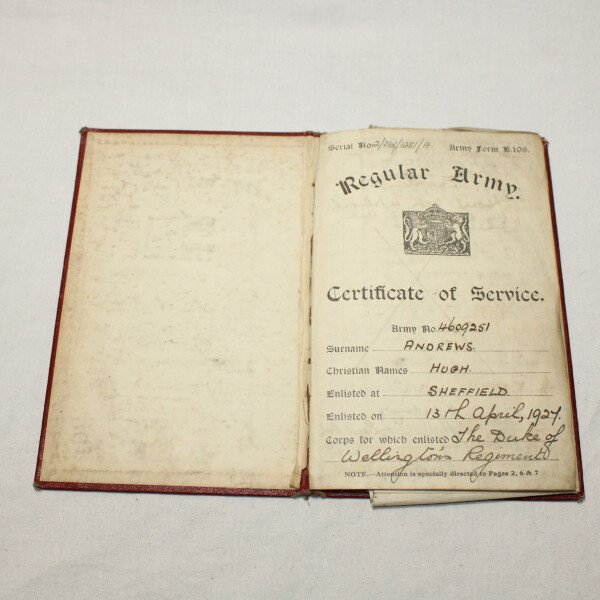 Serial No 2/DW/1281/A. Army Form B.108.
Regular Army.
Certificate of Service.
Army No 4609251
Surname ANDREWS.
Christian Names HUGH.
Enlisted at SHEFFIELD.
Enlisted on 13th April, 1927.
Corps for which enlisted The Duke of
Wellington's Regiment
NOTE.—Attention is specially directed to Pages 2, 6 & 7